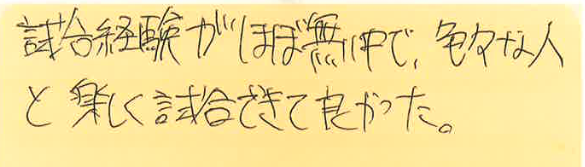 試合経験がほぼ無い中で、色々な人
と楽しく試合できて良かった。